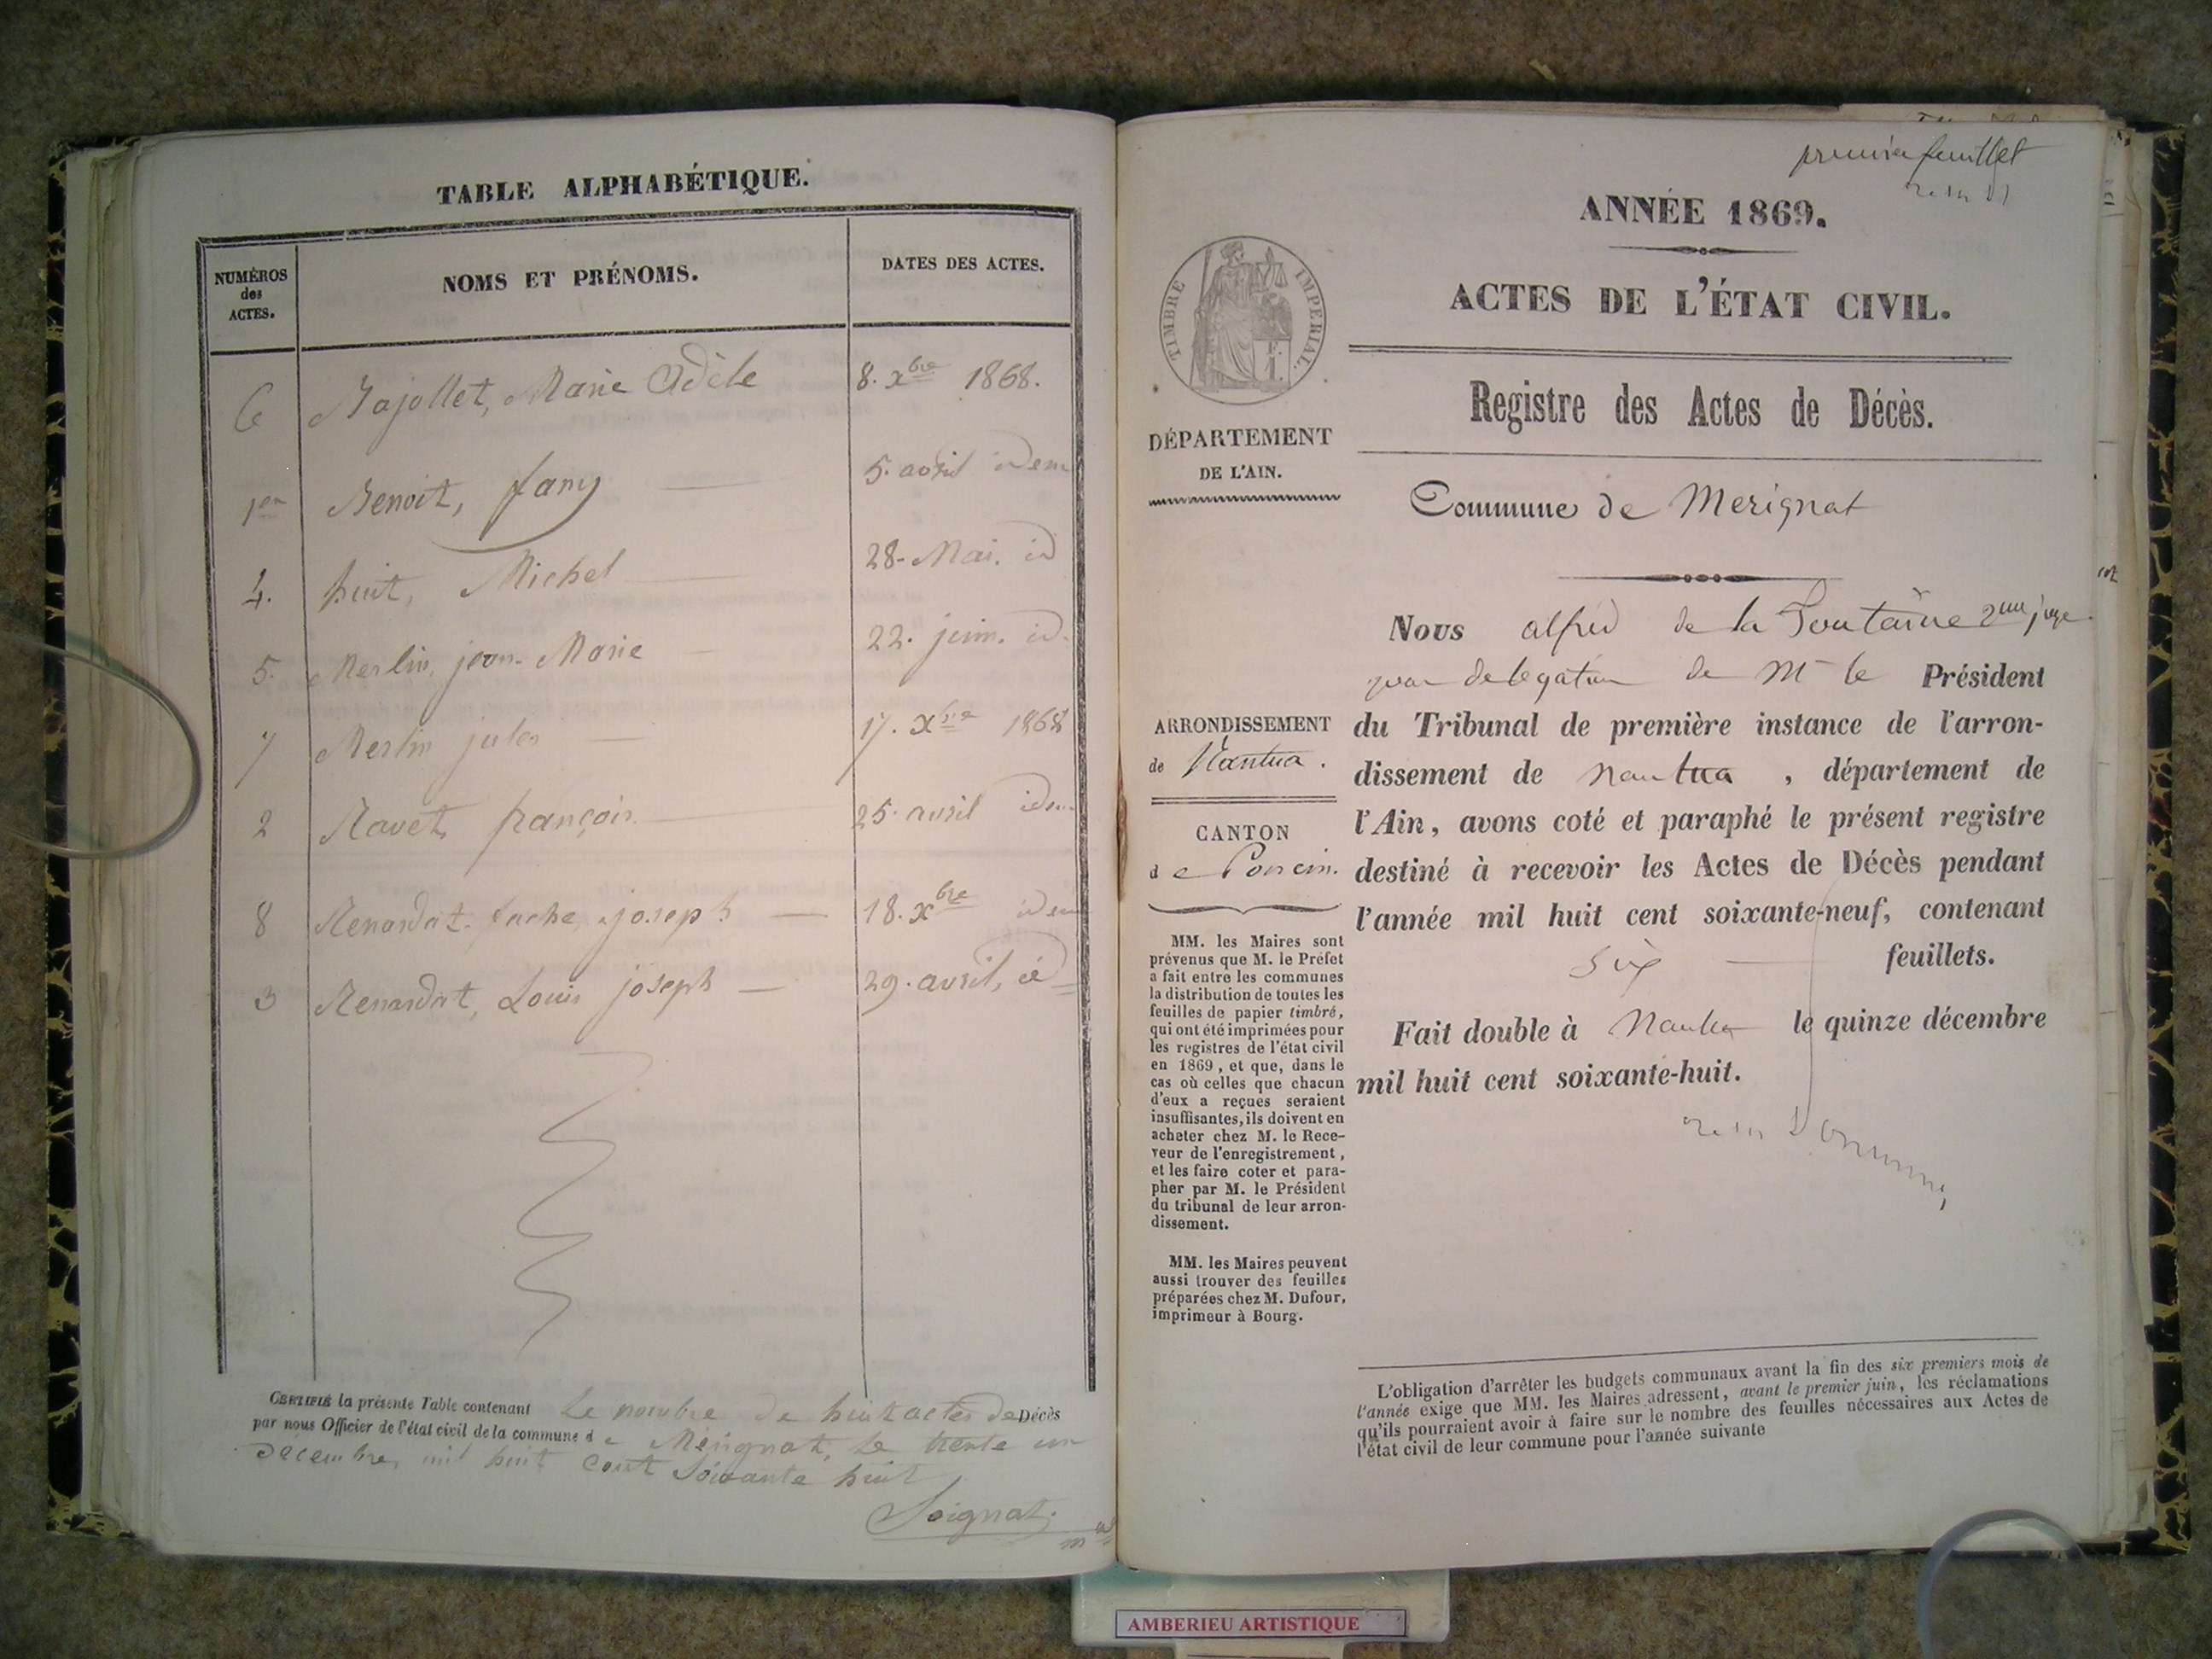 TABLE ALPHABÉTIQUE.
NUMÉROS
des
ACTES.
NOMS ET PRÉNOMS.
DATES DES ACTES.
6 Bajollet, Marie Adèle 8. xbre 1868.
1er Benoit, fany 5. avril idem
4. huit, Michel 28. Mai. id
5. Merlin, jean-Marie 22. juin. id.
7 Merlin jules 17. Xbre 1868
2 Ravet, françois 25. avril idem
8 Renardat-fache, joseph 18. xbre idem
3 Renardat, Louis joseph 29. avril, id
CERTIFIÉ la présente Table contenant Le nombre de huit actes de Décès
par nous Officier de l'état civil de la commune de Mérignat, le trente un
décembre, mil huit cent soixante huit
Soignat.
premier feuillet
ANNÉE 1869.
ACTES DE L'ÉTAT CIVIL.
TIMBRE IMPÉRIAL.
Registre des Actes de Décès.
DÉPARTEMENT
DE L'AIN.
Commune de Merignat
Nous alfred de la Fontaine 2me juge
par delegation de Mr le Président
du Tribunal de première instance de l'arron-
dissement de nantua, département de
l'Ain, avons coté et paraphé le présent registre
destiné à recevoir les Actes de Décès pendant
l'année mil huit cent soixante-neuf, contenant
six feuillets.
Fait double à Nantua le quinze décembre
mil huit cent soixante-huit.
ARRONDISSEMENT
de Nantua.
CANTON
de Poncin.
MM. les Maires sont
prévenus que M. le Préfet
a fait entre les communes
la distribution de toutes les
feuilles de papier timbré,
qui ont été imprimées pour
les registres de l'état civil
en 1869, et que, dans le
cas où celles que chacun
d'eux a reçues seraient
insuffisantes, ils doivent en
acheter chez M. le Rece-
veur de l'enregistrement,
et les faire coter et para-
pher par M. le Président
du tribunal de leur arron-
dissement.
MM. les Maires peuvent
aussi trouver des feuilles
préparées chez M. Dufour,
imprimeur à Bourg.
L'obligation d'arrêter les budgets communaux avant la fin des six premiers mois de
l'année exige que MM. les Maires adressent, avant le premier juin, les réclamations
qu'ils pourraient avoir à faire sur le nombre des feuilles nécessaires aux Actes de
l'état civil de leur commune pour l'année suivante
AMBERIEU ARTISTIQUE